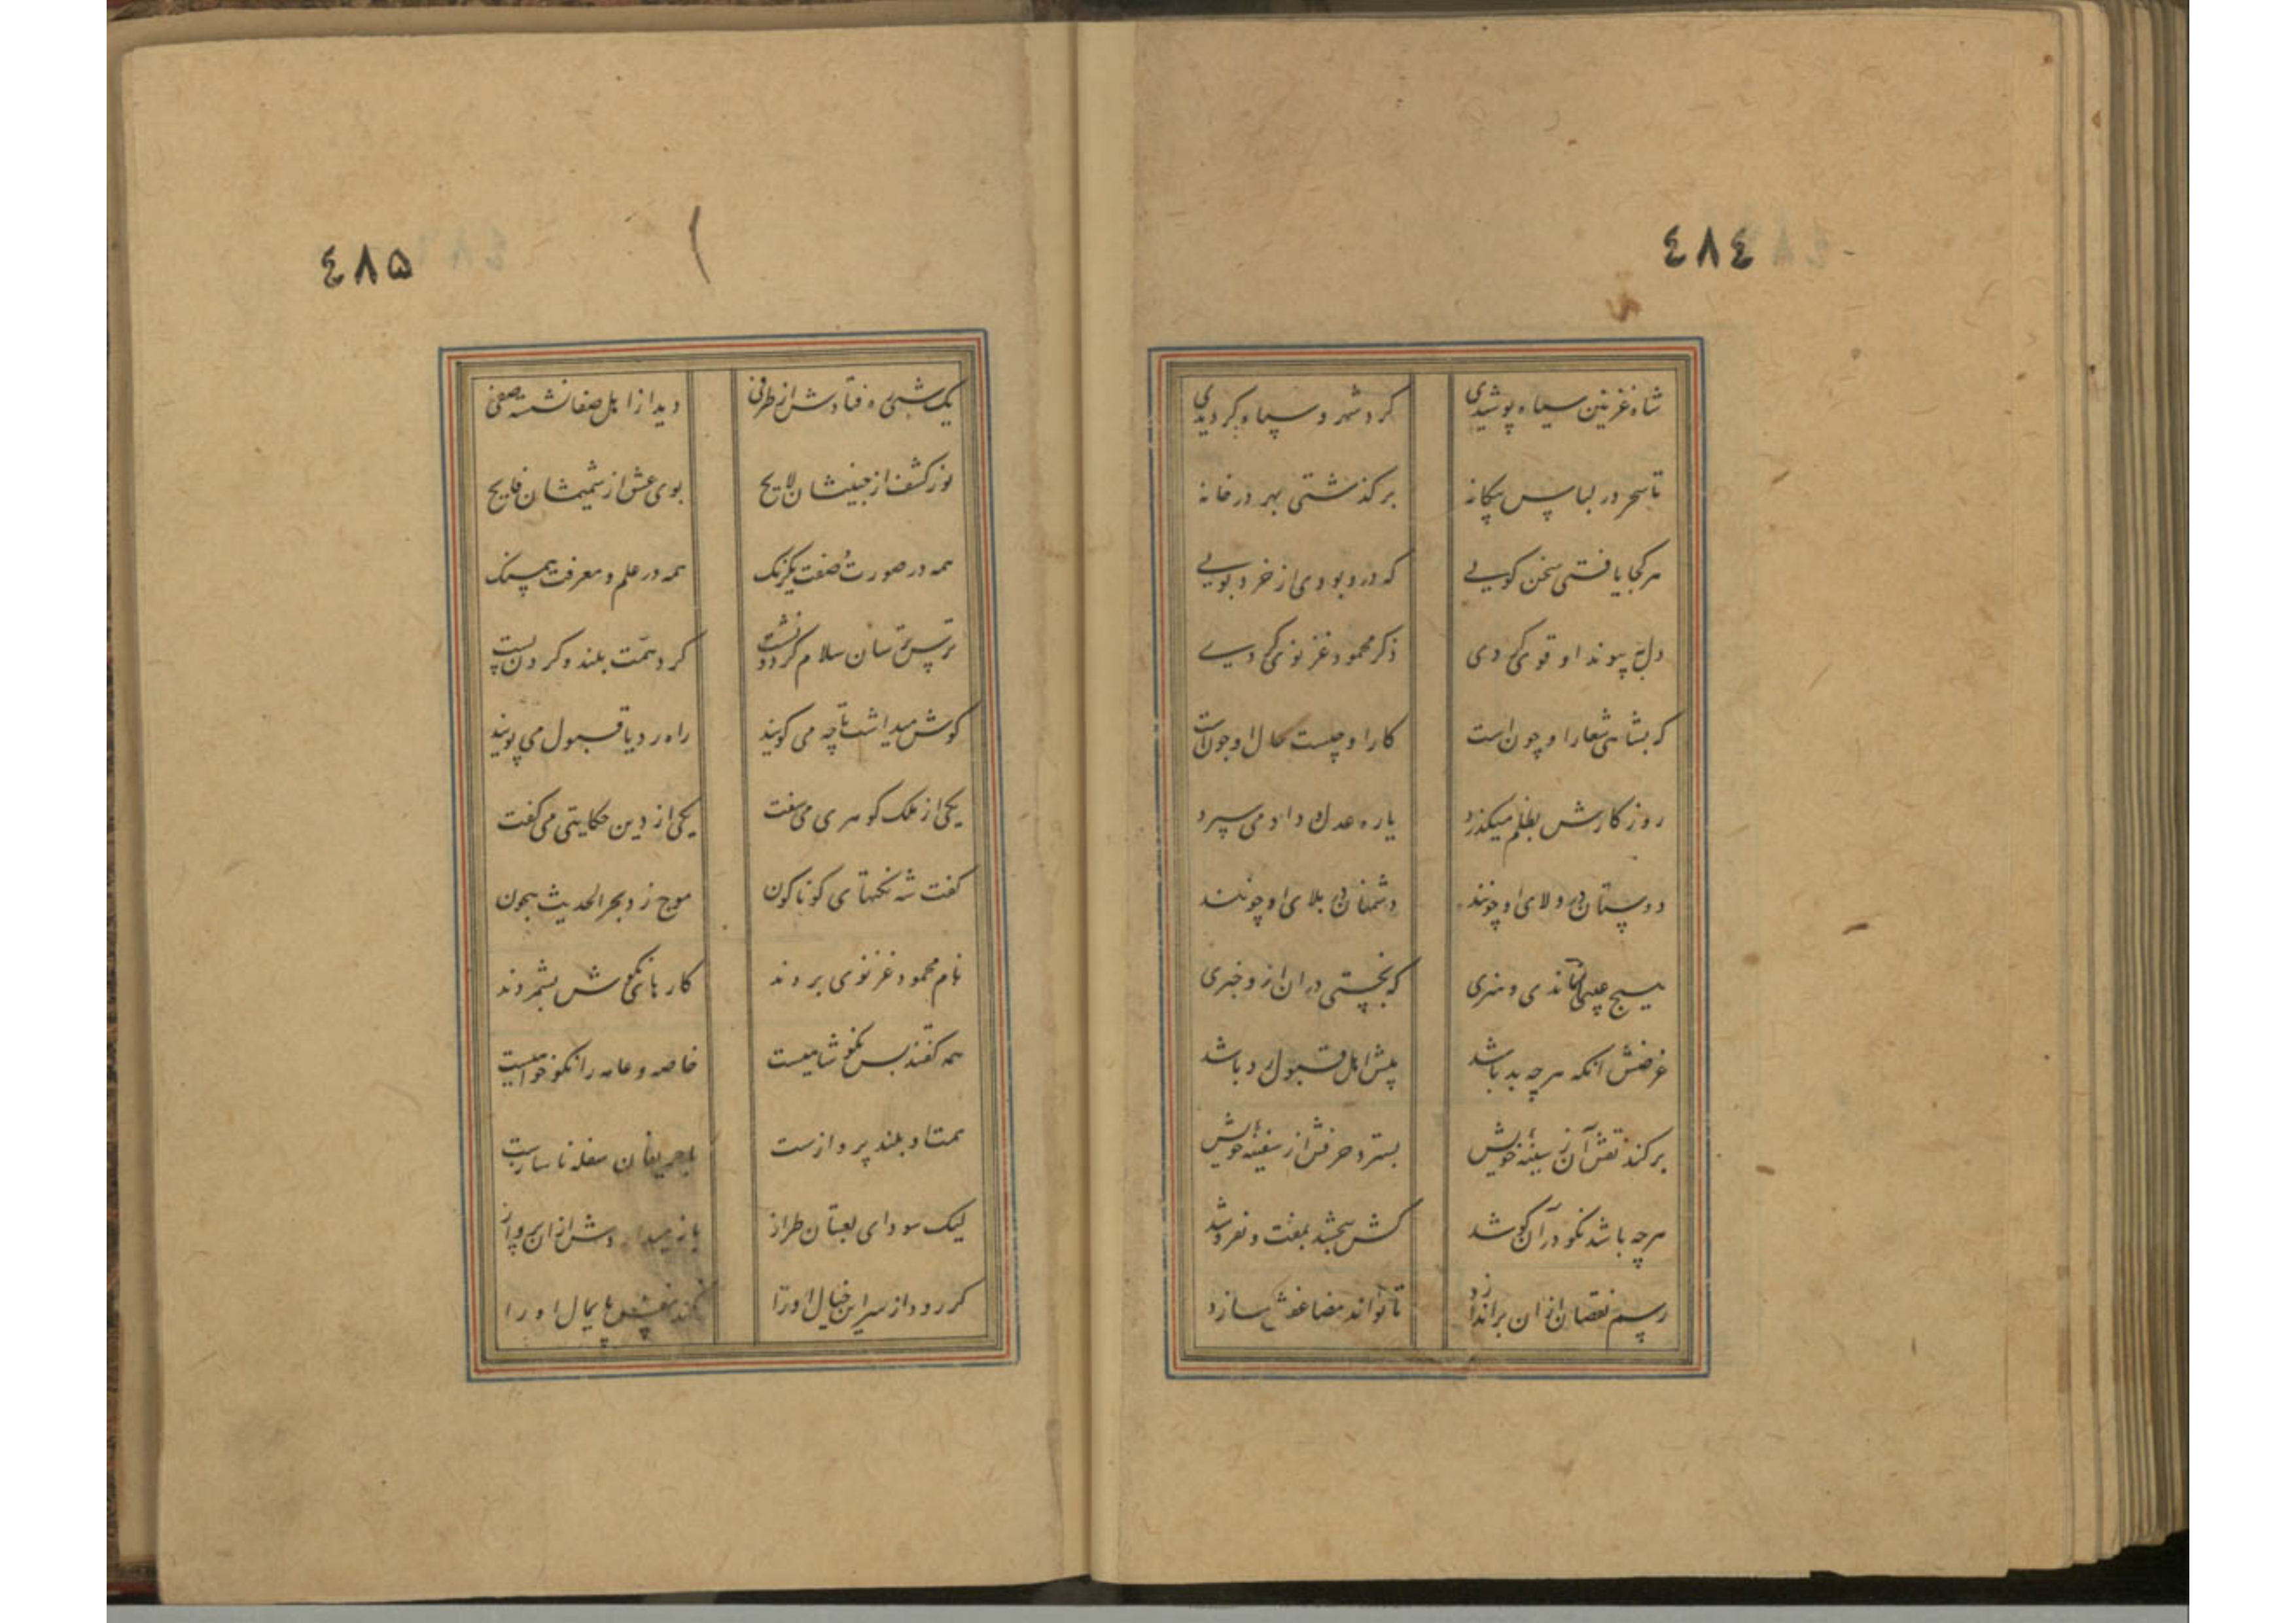 ٤٨٤
شاه غزنین سیاه پوشیدی گرد شهر و سپاه گردیدی
تا سحر در لباس بیکانه برکذشتی بهر در خانه
هر کجا یافتی سخن کویی که درو بودی از خرد بویی
دل به پیوند او قوی کردی ذکر محمود غزنوی کردی
که بشاهی شعار او چون است کار او چیست حال او چون است
روزکارش بظلم میکذرد یا ره عدل و داد می سپرد
دوستان در ولای او چونند دشمنان در بلای او چونند
هیچ عیبی نماندی و هنری که نجستی در ان ازو خبری
غرضش انکه هر چه بد باشد پیش اهل قبول رد باشد
برکند نقش آن ز سینهٔ خویش بسترد حرفش از سفینهٔ خویش
هر چه باشد نکو در آن کوشد کش ببخشد بمفت و نفروشد
رسم نقصان از ان براندازد تا تواند مضاعفش سازد
٤٨۵
یک شبی ره فتادش از طرفی دید از اهل صفا نشسته صفی
نور کشف از جبینشان لایح بوی عشق از شمیمشان فایح
همه در صورت و صفت یکرنک همه در علم و معرفت همسنک
بر سر آستان سلام کرد و نشست کرد همت بلند و کردن پست
کوش میداشت تا چه می کویند راه رد یا قبول می پویند
یکی از ملک کوهری می سفت یکی از دین حکایتی می کفت
کفت شه نکتهای کوناکون موج زد بحر الحدیث شجون
نام محمود غزنوی بردند کارهای نکوش بشمردند
همه کفتند بس نکو شاهیست خاصه و عامه را نکو خواهیست
همت او بلند پروازست با حریفان سفله ناسازست
لیک سودای لعبتان طراز باز میدا ردش از ان پرواز
کر رود از سر این خیال او را نکند نفس پایمال او را